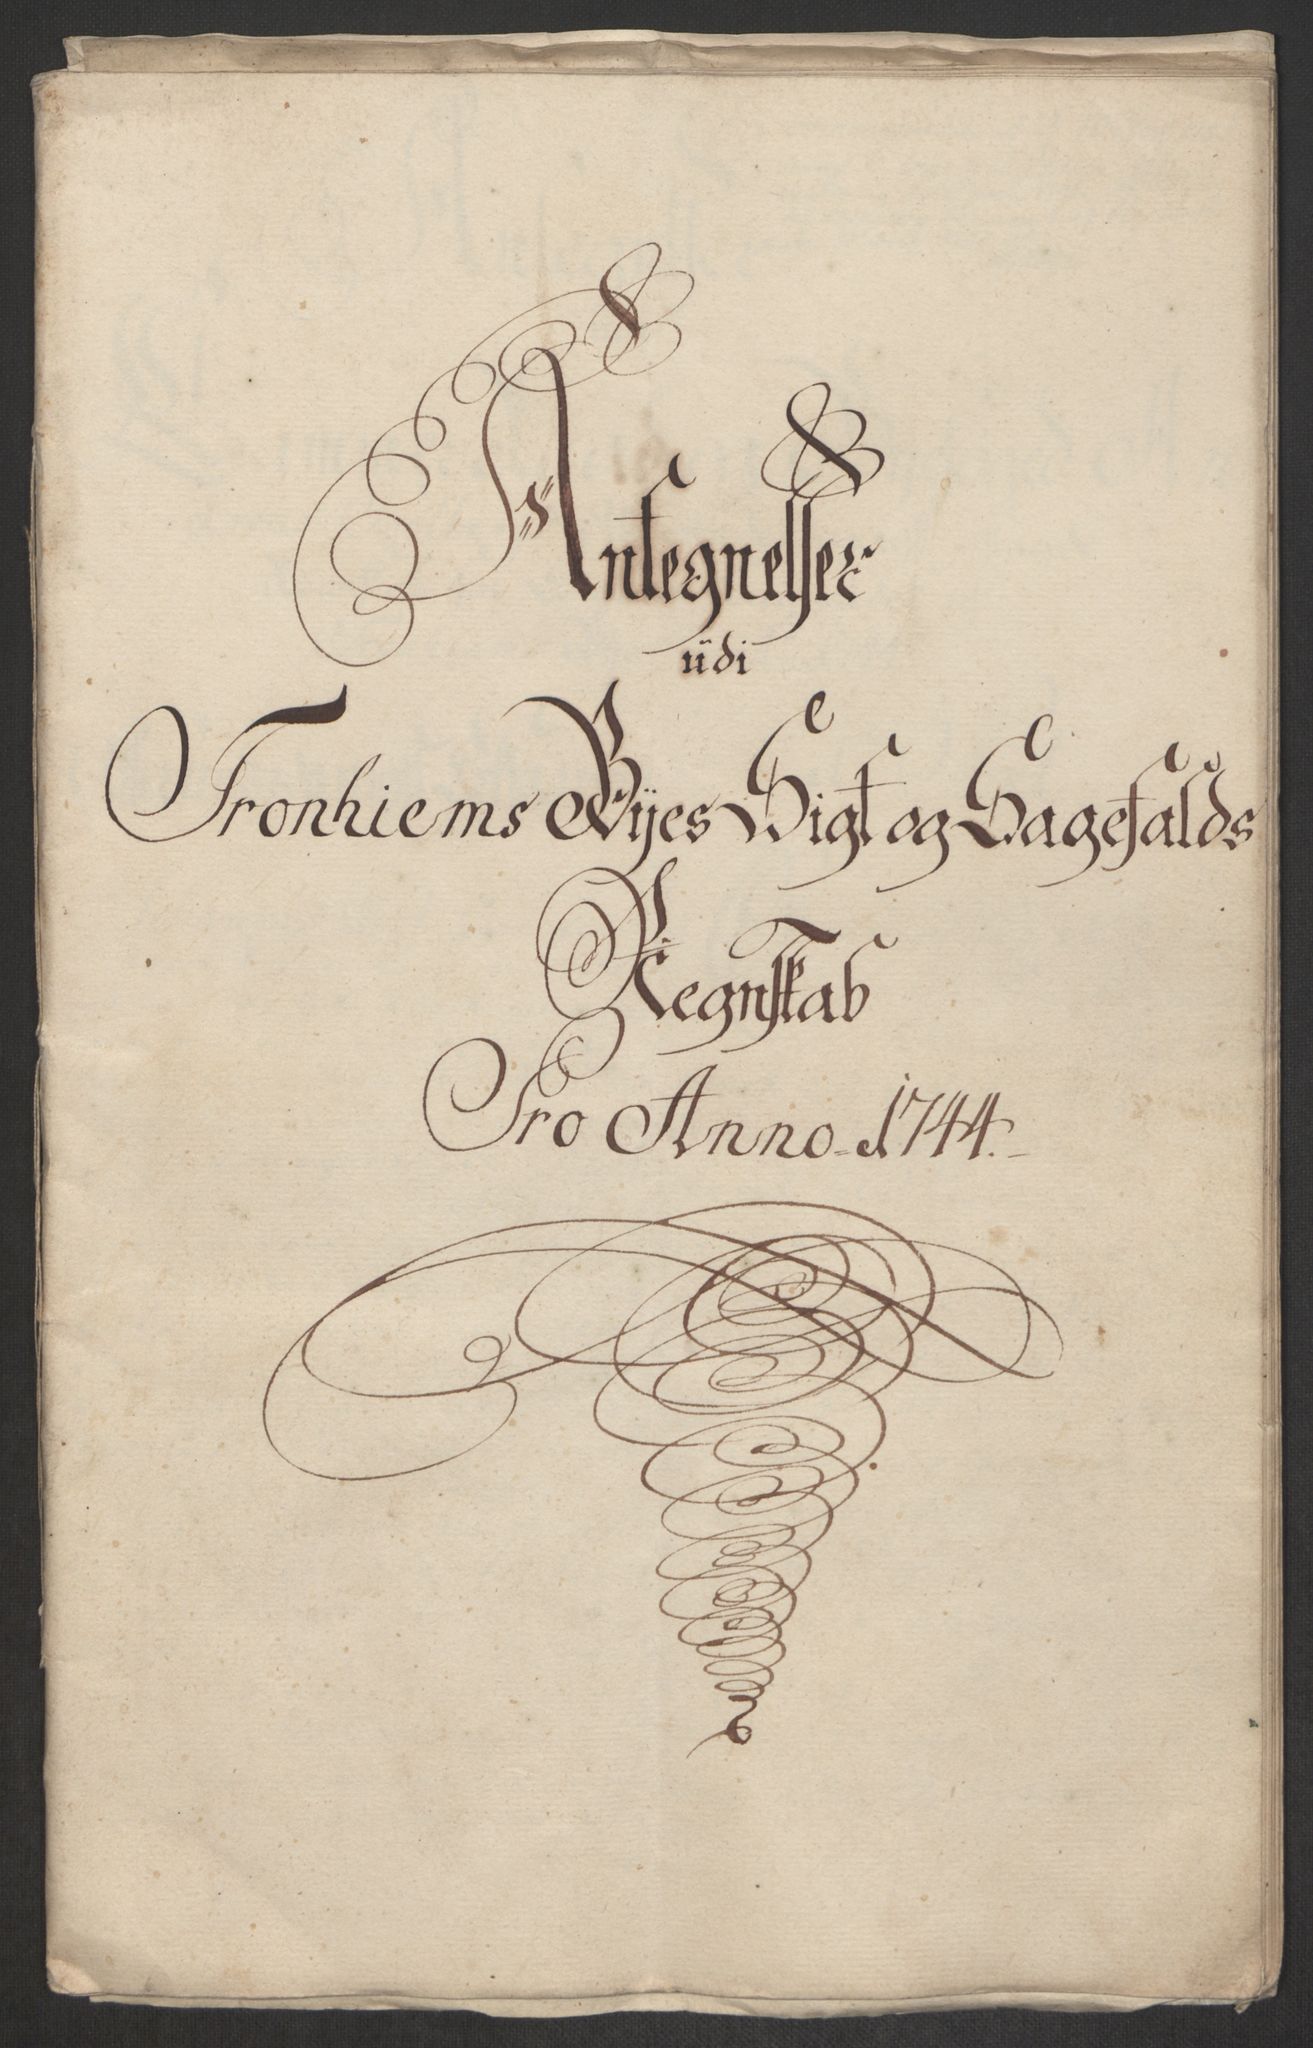 Antegnelser
üdi
Tronhiems Bÿes Sigt og Sagefalds
Regnskab
Pro Anno 1744.